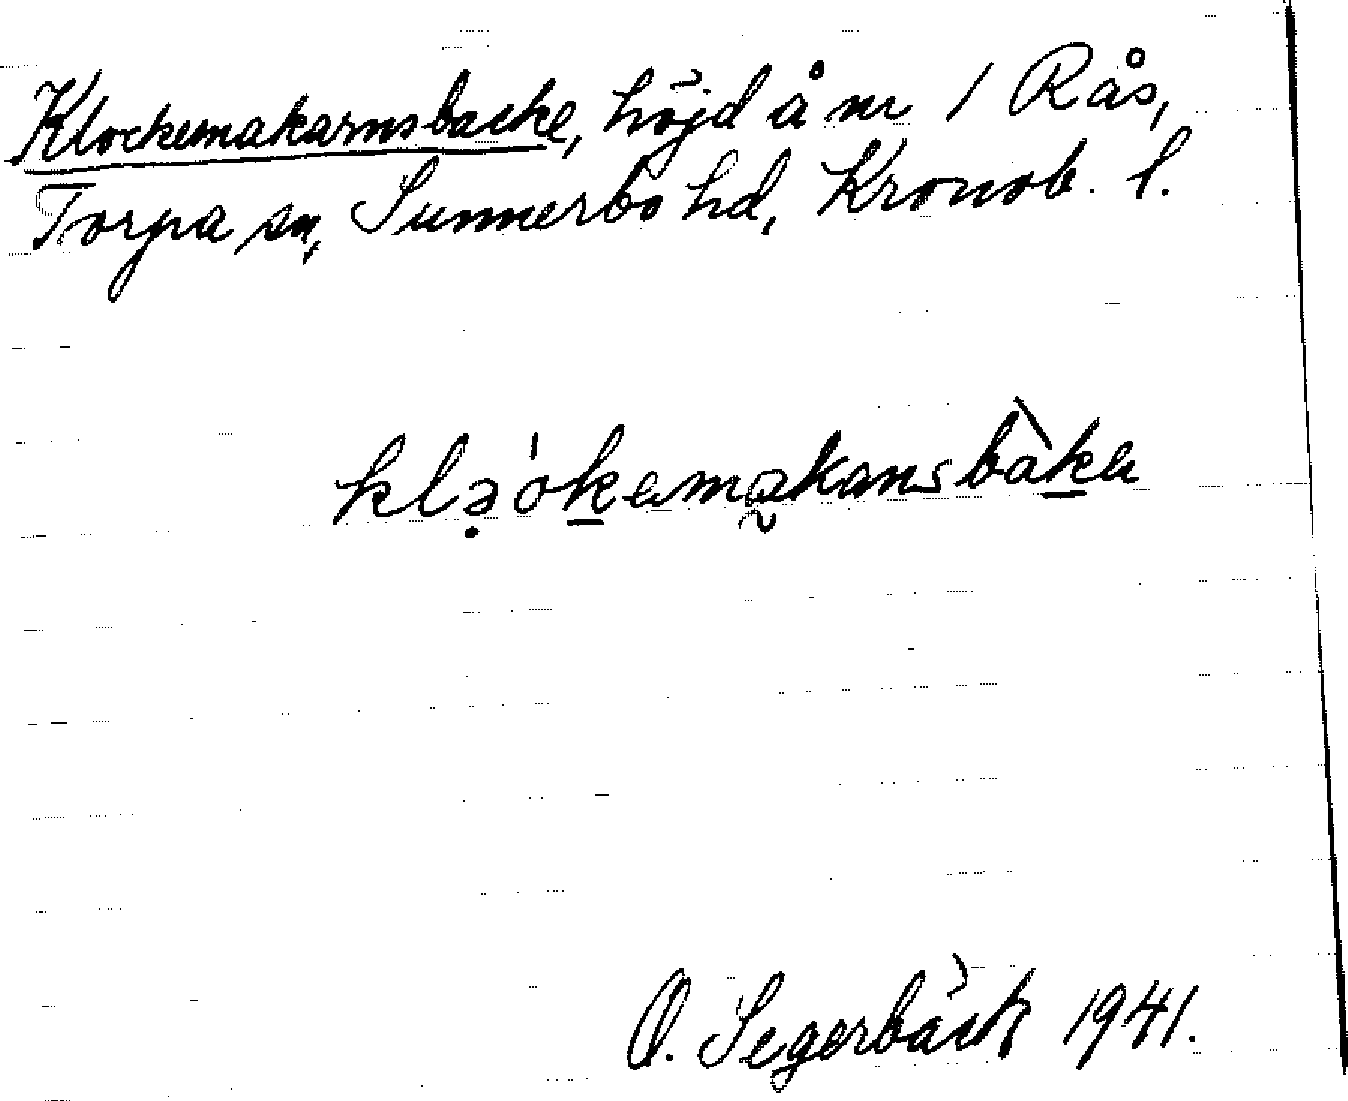 Klockemakarnsbacke, höjd å nr 1 Rås,
Torpa sn, Sunnerbo hd, Kronob. l.
klə̣ókemakansbàka
O. Segerbäck 1941.